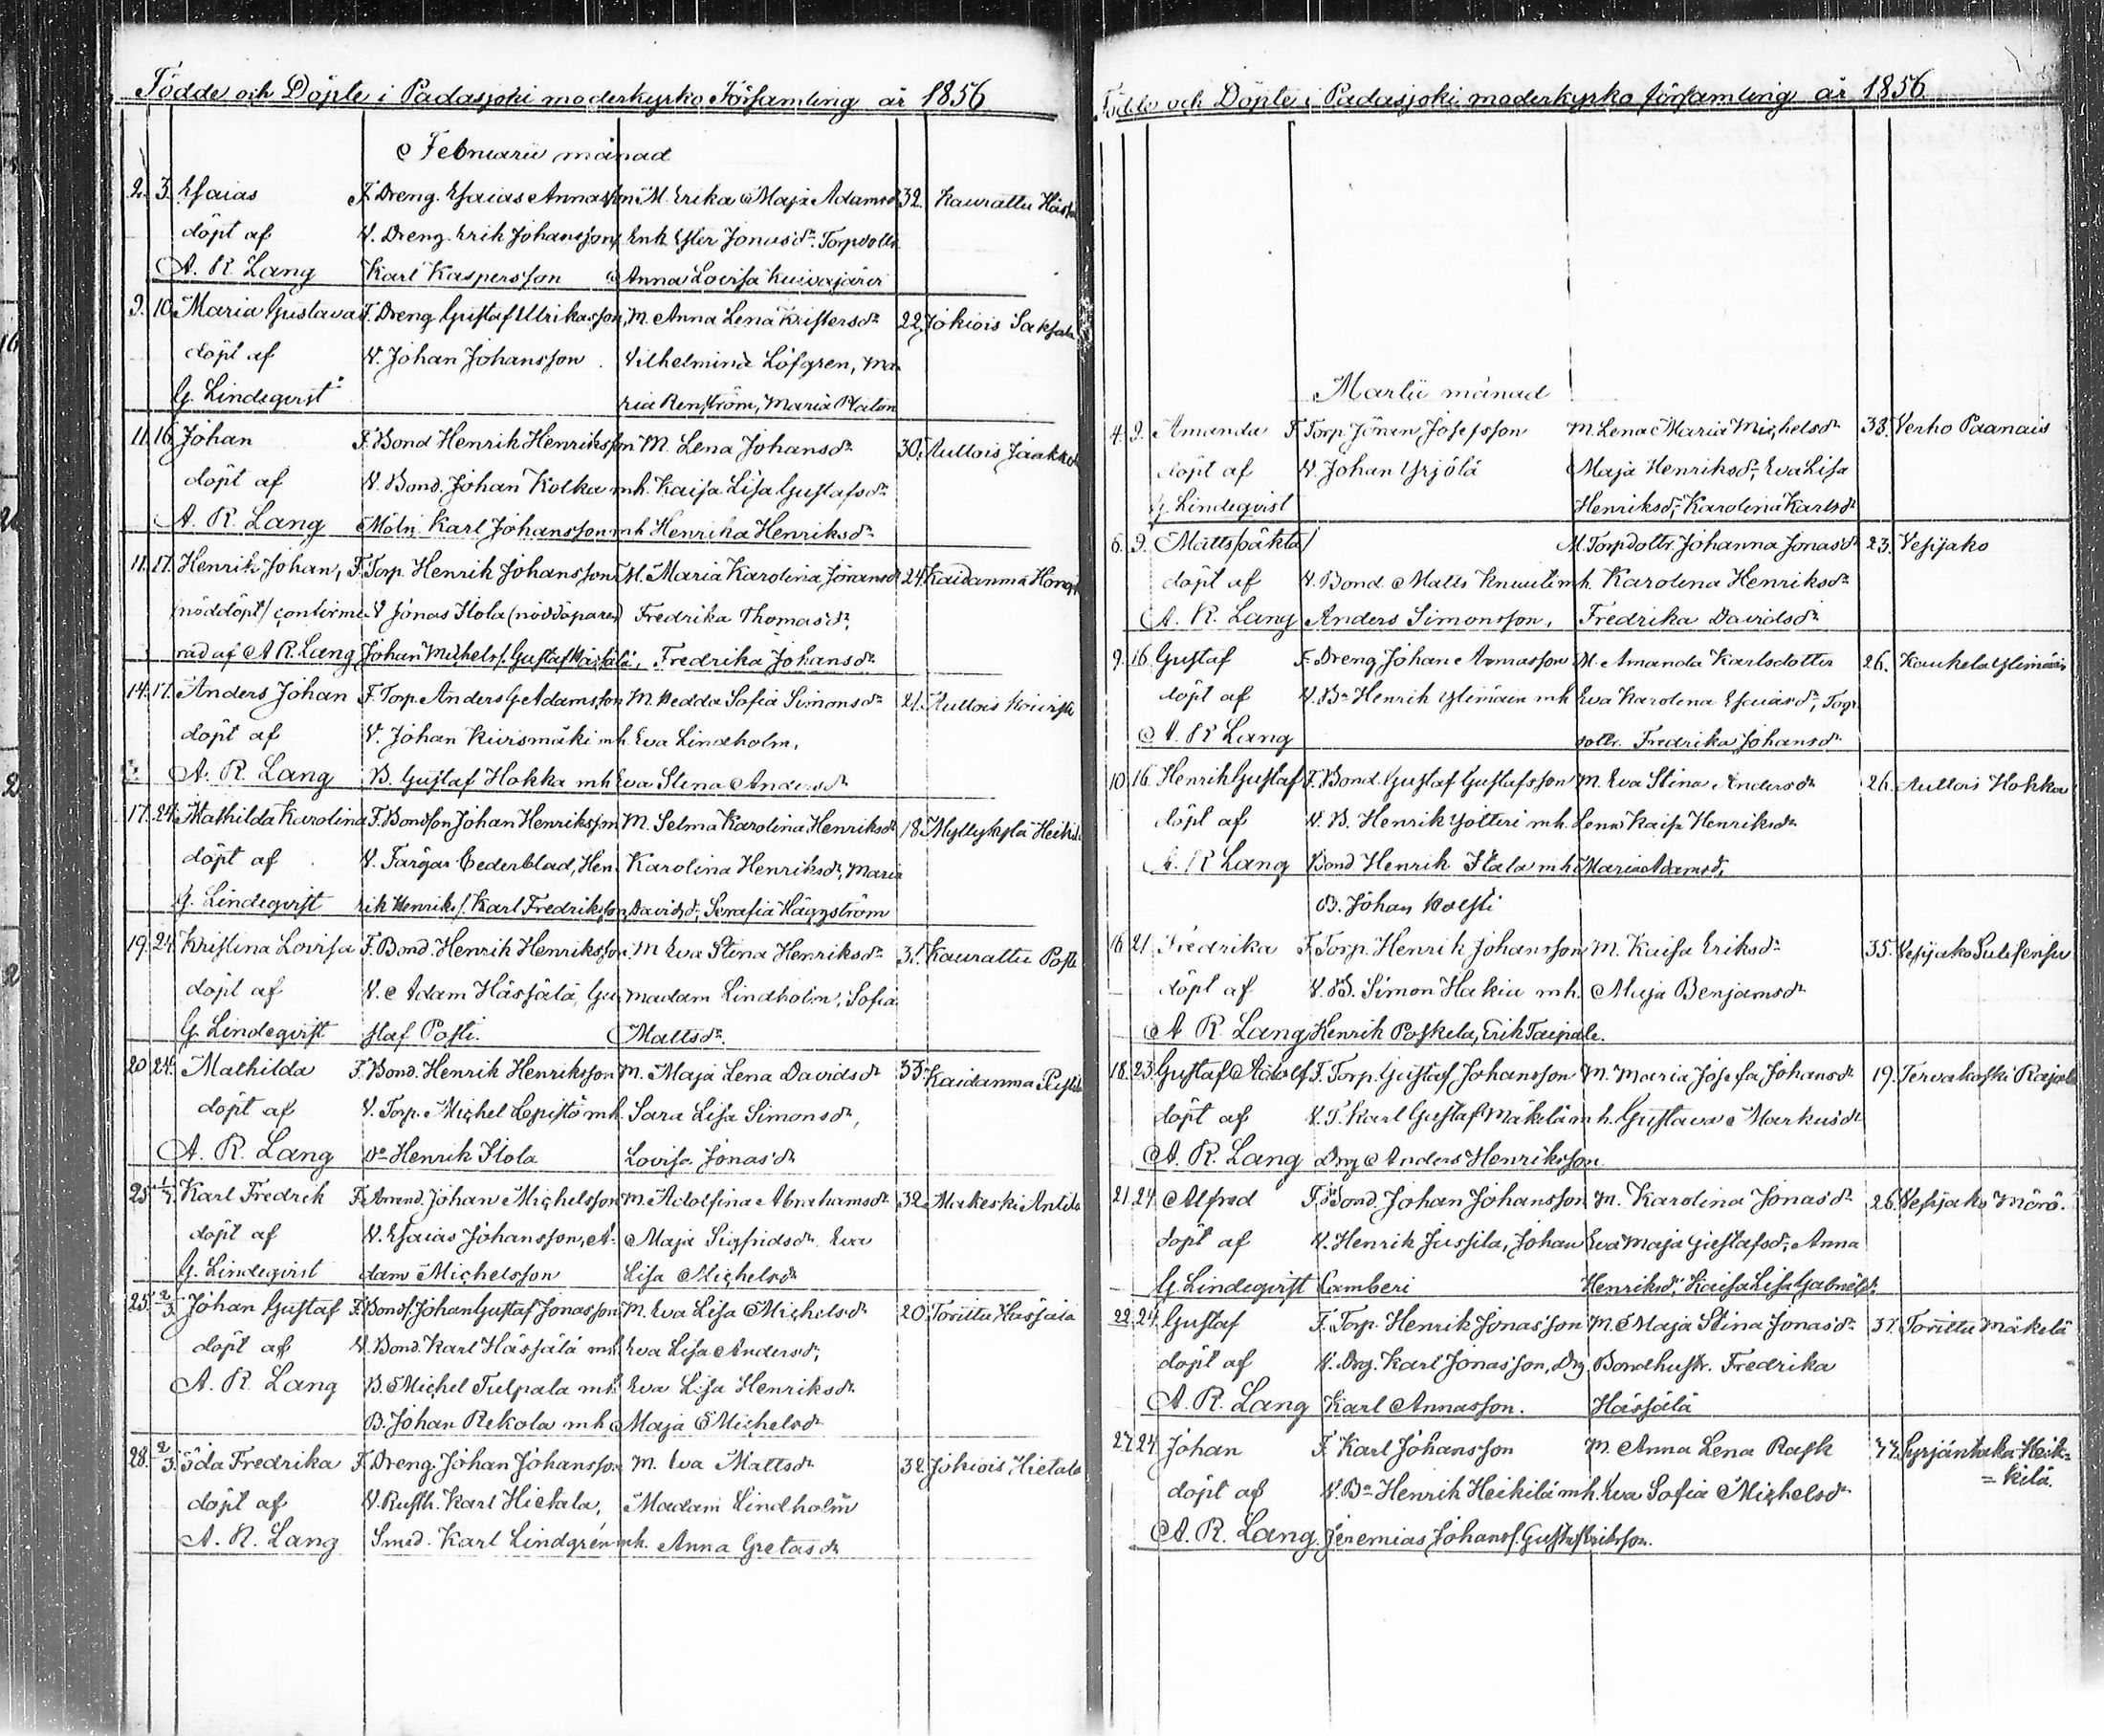 Födde och Döpte i Padasjoki moderkyrko Församling år 1856
Februarii månad
2. 3. Esaias F. Dreng. Esaias Annasson M. Erika Maja Adamsd 32. Kaurattu
döpt af V. Dreng. Erik Johansson, Enk. Ester Jonasd:r Torpdottr.
A. R. Lang Karl Kaspersson Anna Lovisa Kuivajärvi
9. 10. Maria Gustava F. Dreng Gustaf Ulrikasson, M. Anna Lena Kristersd:r 22. Jokiois Saksala
döpt af V. Johan Johansson. Vilhelmina Löfgren, Ma
G. Lindeqvist ria Renström, Maria Platin
11. 16. Johan F. Bond Henrik Henriksson M. Lena Johansd:r 30. Auttois Jaakkola
döpt af V. Bond. Johan Kolka mh. Kaisa Lisa Gustafsd:r
A. R. Lang Möln. Karl Johansson mh Henrika Henriksd:r
11. 17. Henrik Johan, F. Torp. Henrik Johansson M. Maria Karolina Jöransd 24. Kaidanma
/nöddöpt/ confirme V Jonas Ilola (nöddöparen) Fredrika Thomasd:r,
rad af A R. Lang Johan Michels/. Gustaf Fredrika Johansd:r
14. 17. Anders Johan F. Torp. Anders G Adamsson M. Hedda Sofia Simonsd:r 21. Auttois
döpt af V. Johan Kivismäki mh. Eva Lindholm,
A. R. Lang B. Gustaf Hokka mh Eva Stina Andersd:r
17. 24. Mathilda Karolina F. Bondson Johan Henriksson M. Selma Karolina Henriksd:r 18. Myllykylä Heikkilä
döpt af V. Färgar Cederblad, Hen Karolina Henriksd:r, Maria
G. Lindeqvist rik Henriks/. Karl Fredriksson, Davidsd:r, Serafia Häggström
19. 24. Kristina Lovisa F. Bond. Henrik Henriksson M Eva Stina Henriksd:r 31. Kaurattu Posti
döpt af V. Adam Hässälä, Gu madam Lindholm, Sofia
G. Lindeqvist staf Posti. Mattsd:r.
20 24. Mathilda F. Bond. Henrik Henriksson M. Maja Lena Davidsd:r 33 Kaidanma
döpt af V. Torp. Michel Lepistö mh. Sara Lisa Simonsd:r,
A. R. Lang D:o Henrik Ilola Lovisa Jonasd:r
25. 1/3. Karl Fredrik F. Arrend. Johan Michelsson M. Adolfina Abrahamsd:r 32. Maakeski Anttila
döpt af V. Esaias Johansson, A- Maja Sigfridsd:r Eva
G. Lindeqvist dam Michelsson Lisa Michelsd:r
25. 2/3 Johan Gustaf F. Bonds/. Johan Gustaf Jonasson M. Eva Lisa Michelsd:r 20. Torittu Hässälä
döpt af V. Bond. Karl Hässälä mh Eva Lisa Andersd:r,
A. R. Lang B. Michel Tulpala mh. Eva Lisa Henriksd:r
B. Johan Rekola mh Maja Michelsd:r
28. 2/3. Ida Fredrika F. Dreng Johan Johansson M. Eva Mattsd:r 32. Jokiois Hietala
döpt af V. Rusth. Karl Hietala, Madam Lindholm
A. R. Lang Smed. Karl Lindgren mh. Anna Gretasd:r
Födde och Döpte i Padasjoki moderkyrko församling år 1856
Martii månad
4. 9. Amanda F Torp Jöran Josefsson M. Lena Maria Michelsd:r 38. Verho Paanais
döpt af V. Johan Yrjölä Maja Henriksd:r, Eva Lisa
G. Lindeqvist Henriksd:r, Karolina Karlsd:r
6. 9. Matts /oäkta/ M. Torpdottr. Johanna Jonasd:r 23. Vesijako
döpt af V. Bond. Matts Knuuti mh. Karolina Henriksd:r
A. R. Lang Anders Simonsson, Fredrika Davidsd:r
9. 16. Gustaf F. Dreng Johan Annasson M. Amanda Karlsdotter 26. Kaukela Ylimäin
döpt af V. B:n Henrik Ylimäin mh Eva Karolina Esaiasd:r, Torp
A. R. Lang dottr. Fredrika Johansd:r
10 16. Henrik Gustaf F. Bond. Gustaf Gustafsson M. Eva Stina Andersd:r 26. Auttois Hokka
döpt af V. B. Henrik mh. Lena Kaisa Henriksd:r
A. R. Lang Bond Henrik Itala mh Maria Adamsd:r,
B. Johan
16 21. Fredrika F. Torp. Henrik Johansson M. Kaisa Eriksd:r 35. Vesijako
döpt af V. B. Simon Hakia mh. Maja Benjamsd:r
A. R. Lang Henrik Poskela, Erik Taipale.
18. 23. Gustaf Adolf F. Torp. Gustaf Johansson M. Maria Josefa Johansd:r 19. Tervakoski Rajala
döpt af V. T. Karl Gustaf Mäkelä mh. Gustava Markusd:r
A. R. Lang Drg Anders Henriksson.
21. 24. Alfred F. Bond. Johan Johansson M. Karolina Jonasd:r 26. Vesijako Mörö.
döpt af V. Henrik Jussila, Johan Eva Maja Gustafsd:r, Anna
G. Lindeqvist Camberi Henriksd:r, Kaisa Lisa Gabrielsd:r.
22. 24. Gustaf F. Torp. Henrik Jonasson M. Maja Stina Jonasd:r 37. Torittu Mäkelä
döpt af V. Drg. Karl Jonasson, Drg. Bondhustr. Fredrika
A. R. Lang Karl Annasson. Hässälä
27. 24 Johan F. Karl Johansson M. Anna Lena Rask Syrjäntaka Heik=
=kilä.
döpt af V. B:n Henrik Heikilä mh. Eva Sofia Michelsd:r
A. R. Lang. Jeremias Johans/. Gustaf Eriksson.